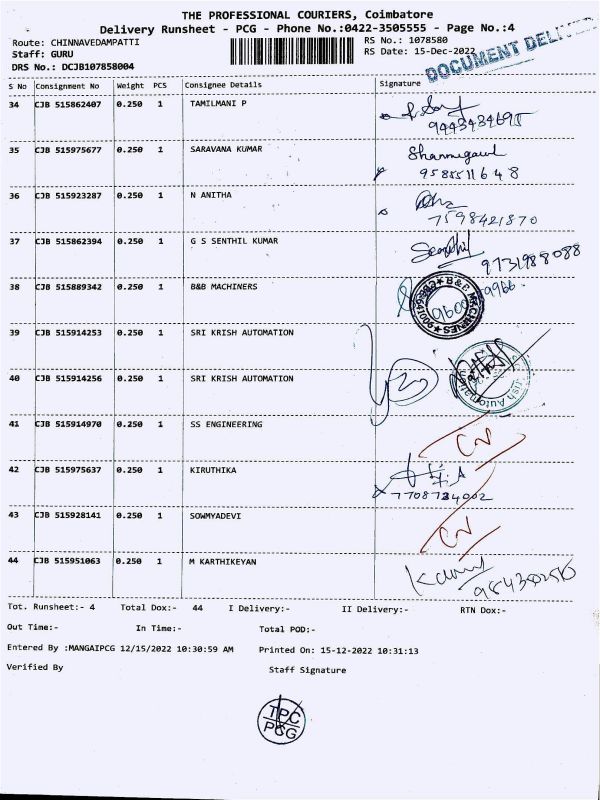 THE PROFESSIONAL COURIERS, Coimbatore
Delivery Runsheet - PCG - Phone No.:0422-3505555 - Page No.:4
Route: CHINNAVEDAMPATTI
RS No.: 1078580
Staff: GURU
RS Date: 15-Dec-2022
DRS No.: DCJB107858004
DOCUMENT
S No Consignment No Weight PCS Consignee Details Signature
34 CJB 515862407 0.250 1 TAMILMANI P
9443434695
35 CJB 515975677 0.250 1 SARAVANA KUMAR
36 CJB 515923287 0.250 1 N ANITHA
7598421870
37 CJB 515862394 0.250 1 G S SENTHIL KUMAR
9731988088
38 CJB 515889342 0.250 1 B&B MACHINERS
39 CJB 515914253 0.250 1 SRI KRISH AUTOMATION
40 CJB 515914256 0.250 1 SRI KRISH AUTOMATION
41 CJB 515914970 0.250 1 SS ENGINEERING
42 CJB 515975637 0.250 1 KIRUTHIKA
43 CJB 515928141 0.250 1 SOWMYADEVI
44 CJB 515951063 0.250 1 M KARTHIKEYAN
Tot. Runsheet:- 4 Total Dox:- 44 I Delivery:- II Delivery:- RTN Dox:-
Out Time:- In Time:- Total POD:-
Entered By :MANGAIPCG 12/15/2022 10:30:59 AM Printed On: 15-12-2022 10:31:13
Verified By Staff Signature
TPC
PCG